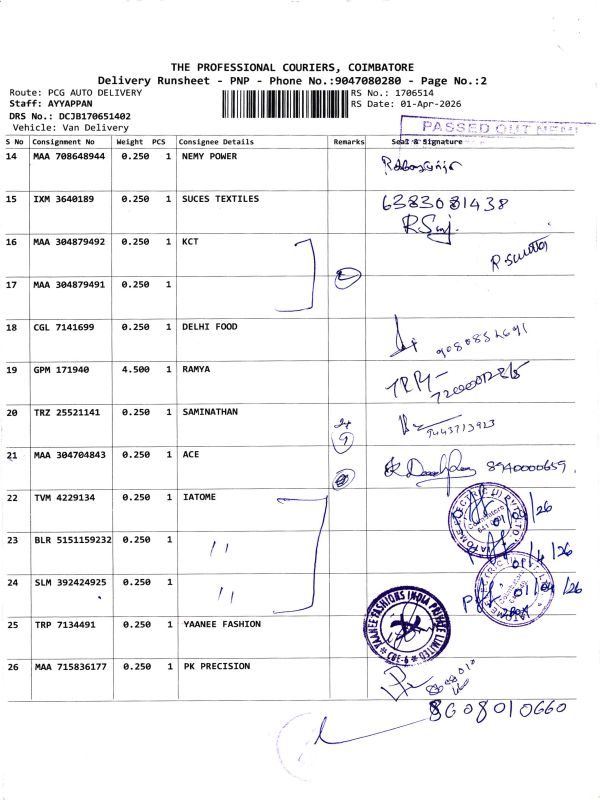 THE PROFESSIONAL COURIERS, COIMBATORE
Delivery Runsheet - PNP - Phone No.:9047080280 - Page No.:2
Route: PCG AUTO DELIVERY RS No.: 1706514
Staff: AYYAPPAN RS Date: 01-Apr-2026
DRS No.: DCJB170651402
Vehicle: Van Delivery
PASSED OUT
S No Consignment No Weight PCS Consignee Details Remarks Seal & Signature
14 MAA 708648944 0.250 1 NEMY POWER
15 IXM 3640189 0.250 1 SUCES TEXTILES 6383081438
16 MAA 304879492 0.250 1 KCT
17 MAA 304879491 0.250 1
18 CGL 7141699 0.250 1 DELHI FOOD
19 GPM 171940 4.500 1 RAMYA
20 TRZ 25521141 0.250 1 SAMINATHAN 9443713923
21 MAA 304704843 0.250 1 ACE 8940000659
22 TVM 4229134 0.250 1 IATOME
23 BLR 5151159232 0.250 1 " 01/4/26
24 SLM 392424925 0.250 1 " 01/04/26
25 TRP 7134491 0.250 1 YAANEE FASHION YAANEE FASHIONS INDIA PRIVATE LIMITED CBE-6
26 MAA 715836177 0.250 1 PK PRECISION
8608010660